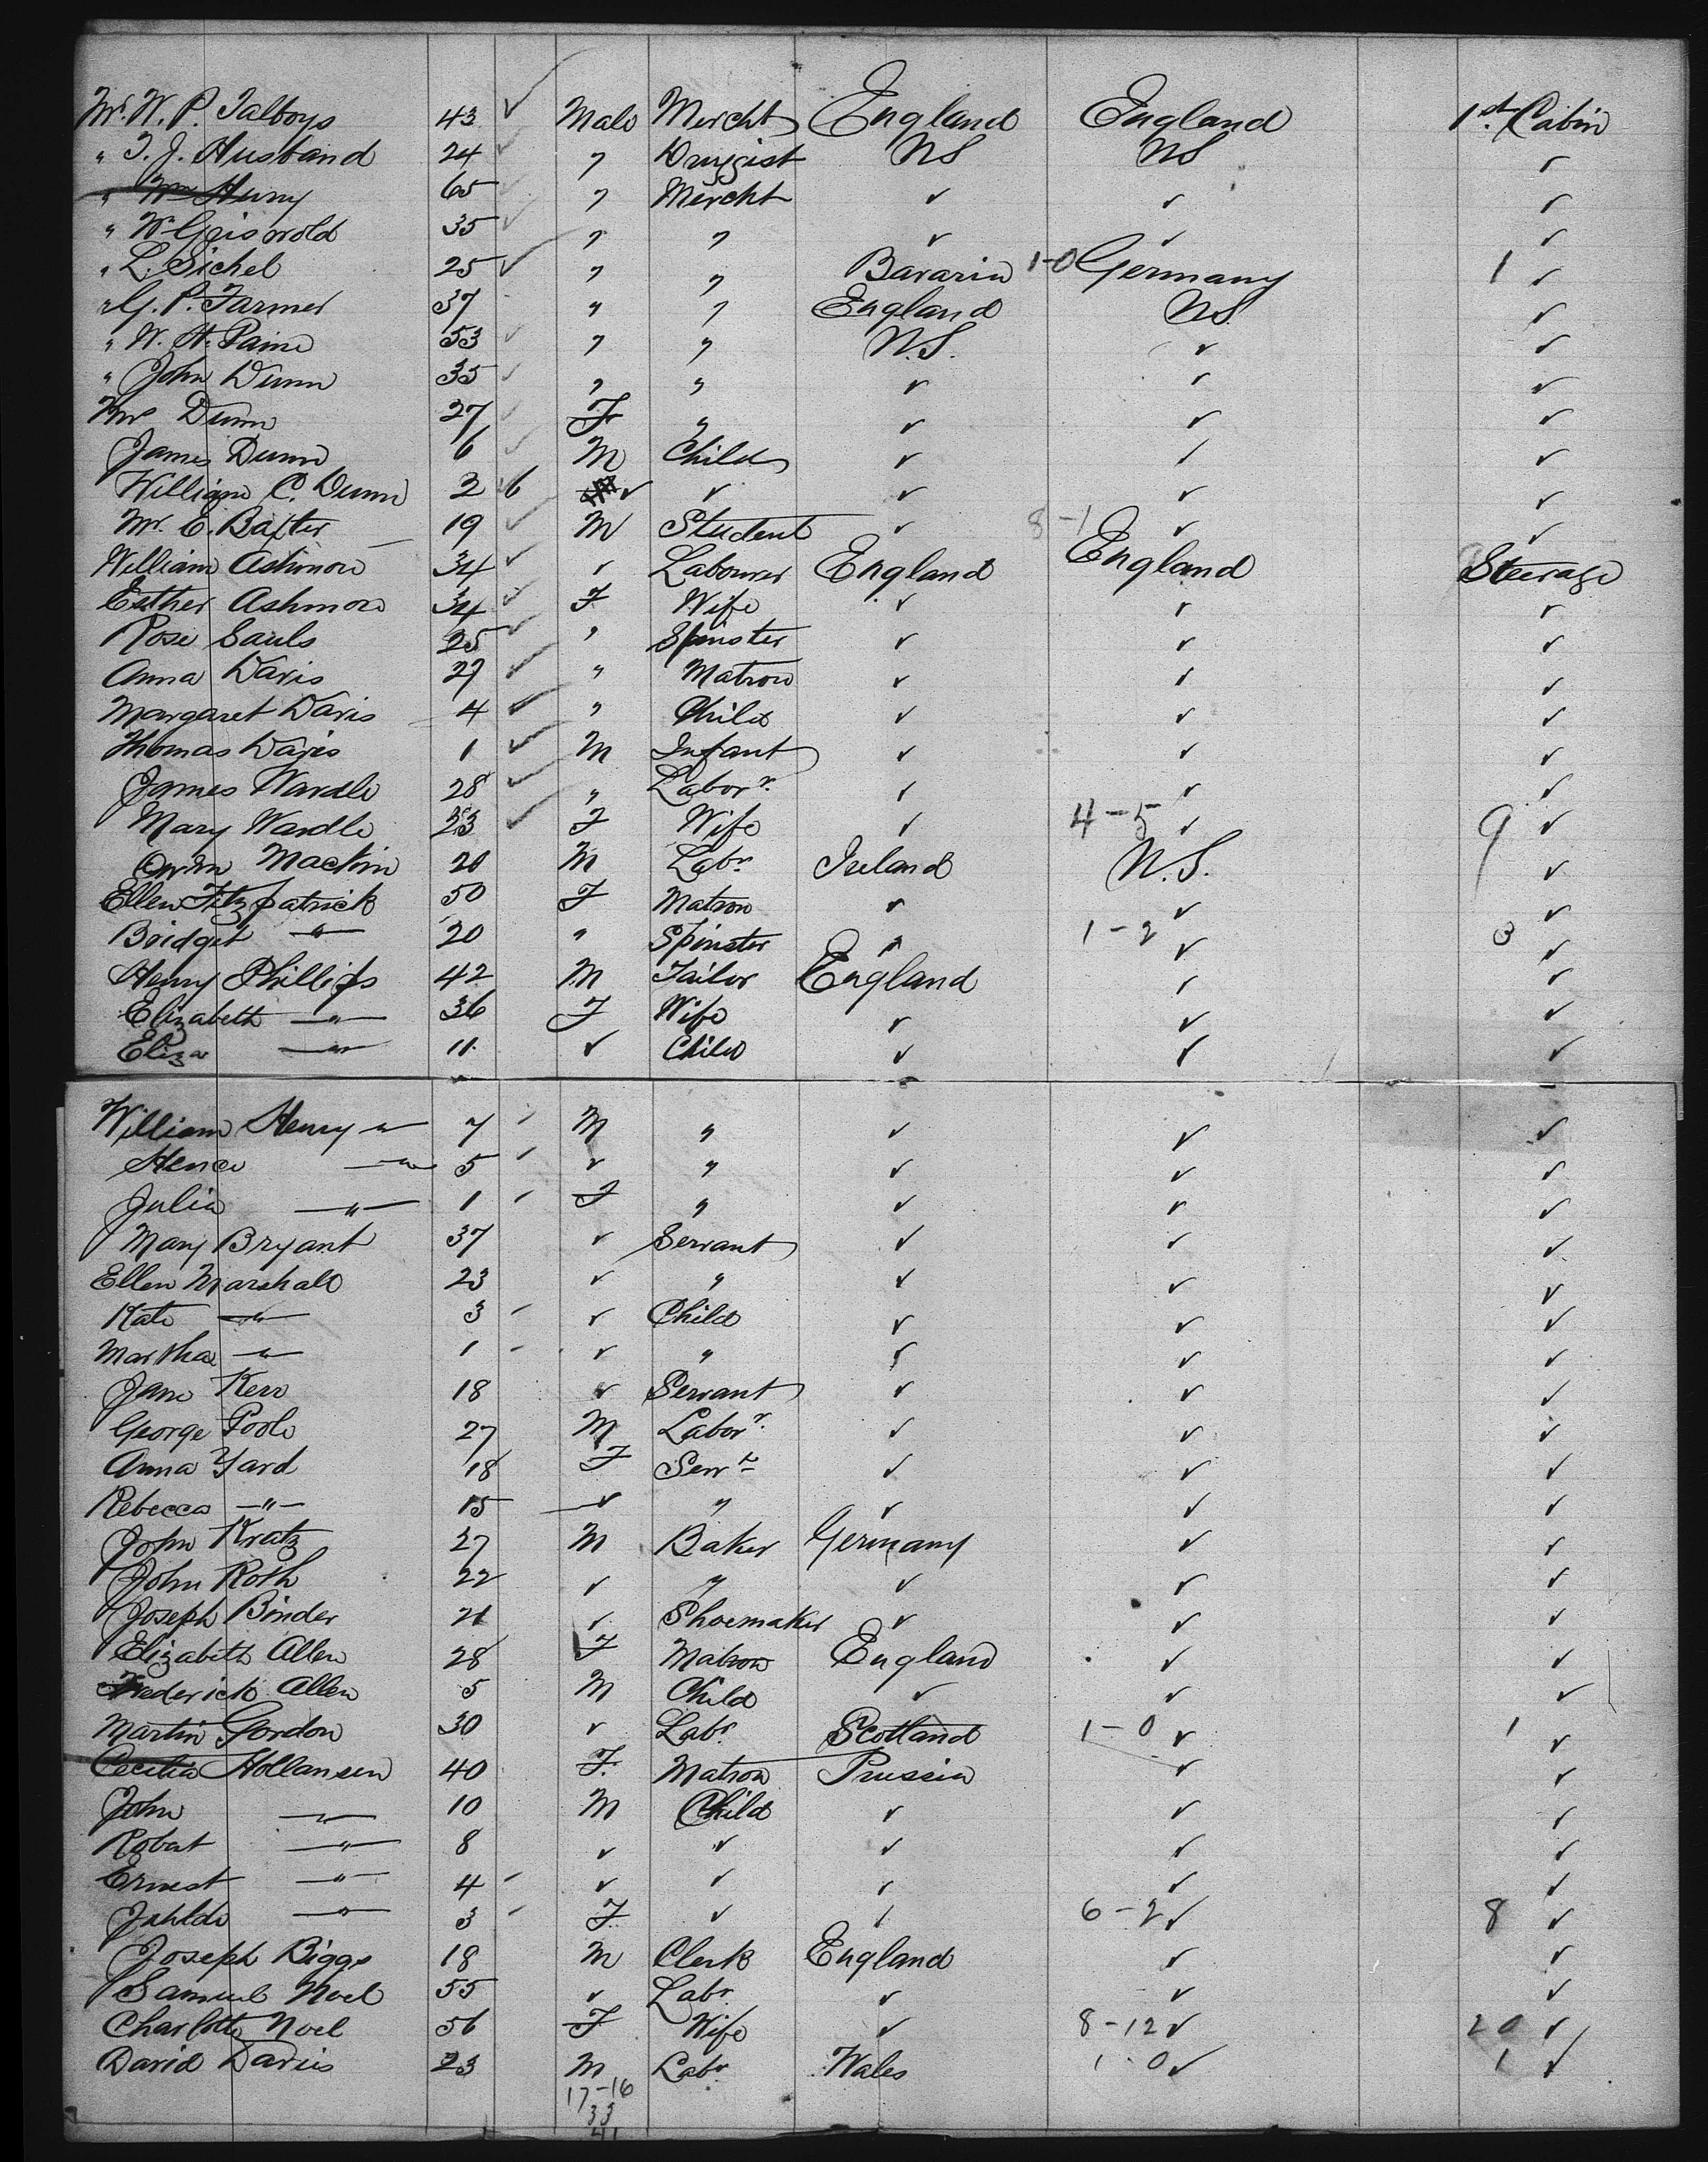 Mr. W. P. Talboys 43 ✓ Male Mercht England England 1st. Cabin
" T. J. Husband 24 ✓ " Druggist US US ✓
" Wm Henry 65 ✓ " Mercht ✓ ✓ ✓
" Wm Griswold 35 ✓ " " ✓ ✓ ✓
" L. Sichel 25 ✓ " " Bavaria 1-0 Germany 1 ✓
" G. P. Farmer 37 " " England US. ✓
" W. H. Paine 53 ✓ " " U.S. ✓ ✓
" John Dunn 35 ✓ " " ✓ ✓ ✓
Mrs Dunn 27 ✓ F. " ✓ ✓ ✓
James Dunn 6 ✓ M Child ✓ ✓ ✓
William C. Dunn 2 6 ✓ ✓ ✓ ✓ ✓
Mr. E. Baxter 19 ✓ M Student ✓ 8-1 ✓ ✓
William Ashmore 34 ✓ ✓ Labourer England England Steerage
Esther Ashmore 34 ✓ F Wife ✓ ✓ ✓
Rose Sauls 25 ✓ " Spinster ✓ ✓ ✓
Anna Davis 27 ✓ " Matron ✓ ✓ ✓
Margaret Davis 4 ✓ " Child ✓ ✓ ✓
Thomas Davis 1 ✓ M Infant ✓ ✓ ✓
James Wardle 28 ✓ " Labor r. ✓ ✓ ✓
Mary Wardle 23 ✓ F Wife ✓ 4-5 ✓ 9 ✓
Owen Mackin 20 M Labr. Ireland U.S. ✓
Ellen Fitzpatrick 50 F Matron ✓ ✓ ✓
Bridget -"- 20 " Spinster " 1-2 ✓ 3 ✓
Henry Phillips 42 M Tailor England ✓ ✓
Elizabeth -"- 36 F Wife ✓ ✓ ✓
Eliza -"- 11 ✓ Child ✓ ✓ ✓
William Henry -"- 7 M " ✓ ✓ ✓
-"- 5 ✓ " ✓ ✓ ✓
Julia -"- 1 F " ✓ ✓ ✓
Mary Bryant 37 ✓ Servant ✓ ✓ ✓
Ellen Marshall 23 ✓ " ✓ ✓ ✓
Kate -"- 3 ✓ Child ✓ ✓ ✓
Martha -"- 1 ✓ " ✓ ✓ ✓
Jane Kerr 18 ✓ Servant ✓ ✓ ✓
George Poole 27 M Labor r. ✓ ✓ ✓
Anna Yard 18 F Servt ✓ ✓ ✓
Rebecca -"- 15 ✓ " ✓ ✓ ✓
John Kratz 27 M Baker Germany ✓ ✓
John Roth 22 ✓ " ✓ ✓ ✓
Joseph Binder 21 ✓ Shoemaker ✓ ✓ ✓
Elizabeth Allen 28 F Matron England ✓ ✓
Frederick Allen 5 M Child ✓ ✓ ✓
Martin Gordon 30 ✓ Labr. Scotland 1-0 ✓ 1 ✓
Cecilia Hollansen 40 F. Matron Prussia ✓ ✓
John -"- 10 M Child ✓ ✓ ✓
Robert -"- 8 ✓ ✓ ✓ ✓ ✓
Ernest -"- 4 ✓ ✓ ✓ ✓ ✓
-"- 3 F ✓ ✓ 6-2 ✓ 8 ✓
Joseph Biggs 18 M Clerk England ✓ ✓
Samuel Noel 55 ✓ Labr. ✓ ✓ ✓
Charlotte Noel 56 F Wife ✓ 8-12 ✓ 20 ✓
David Davies 23 M Labr. Wales 1-0 ✓ 1 ✓
17-16
33
41